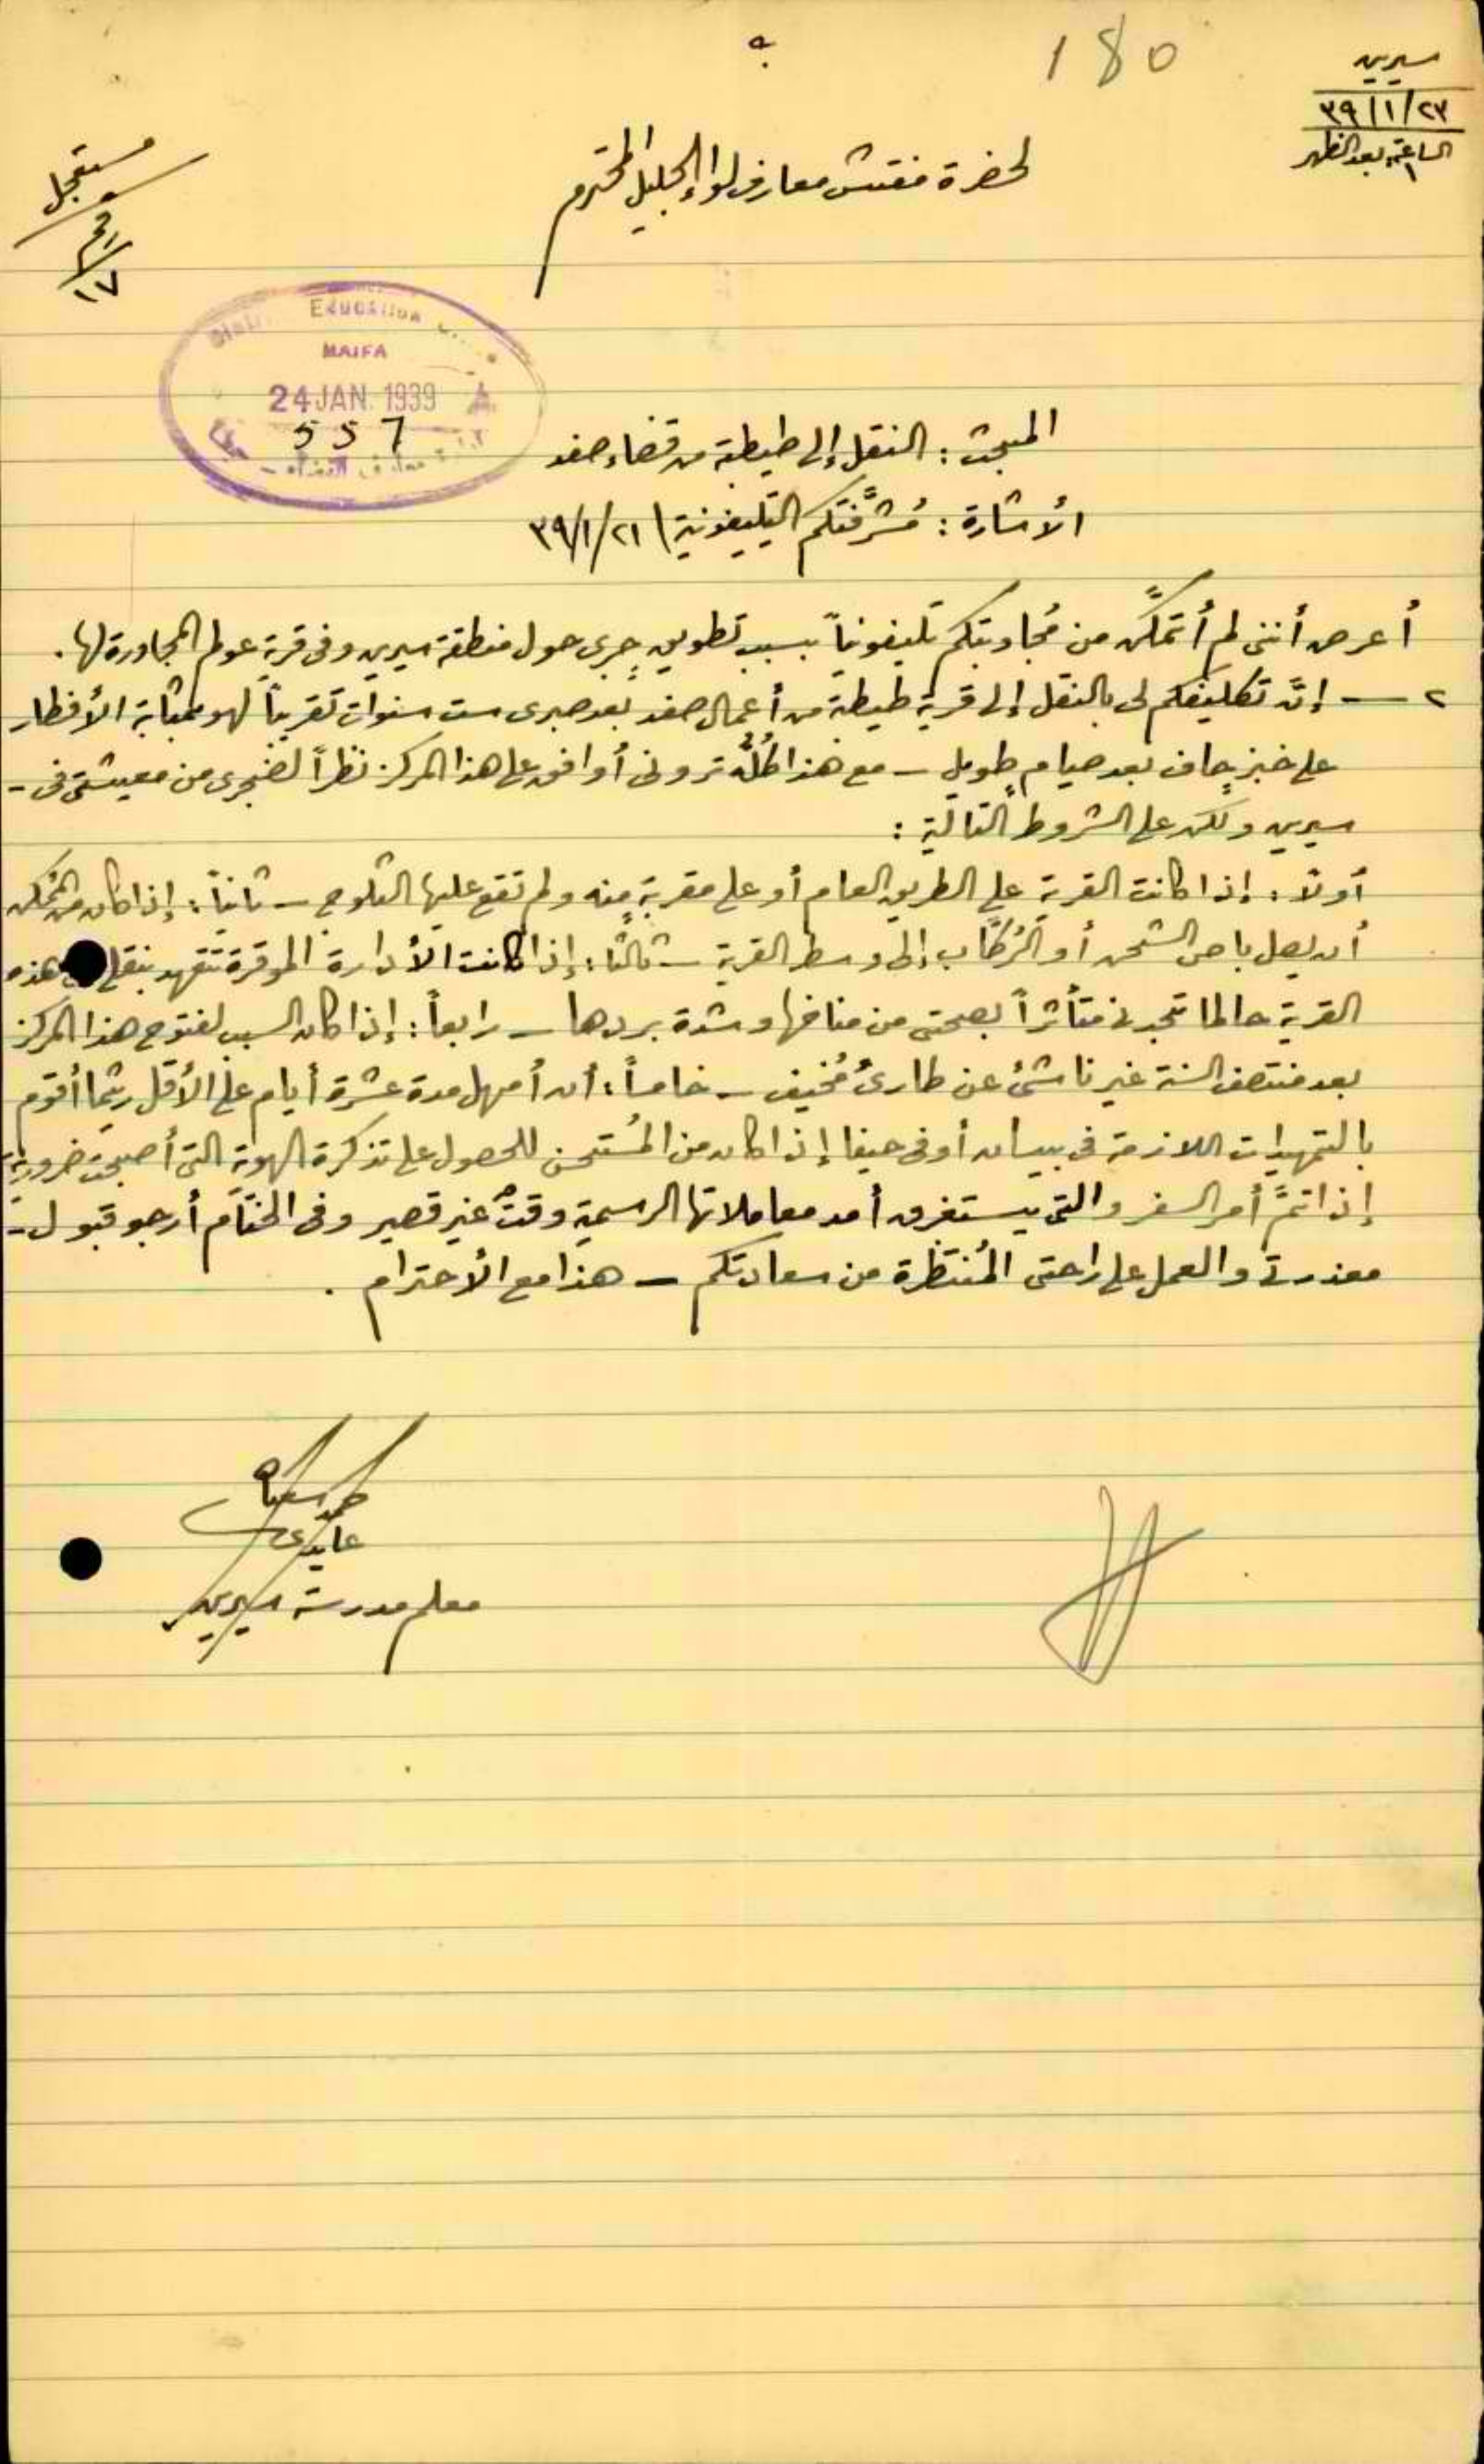 180
سيرين
٢٣/١/٣٩
الساعة ١ بعد الظهر
مستعجل
١٧
لحضرة مفتش معارف لواء الجليل المحترم
EDUCATION
HAIFA
24 JAN. 1939
557
المبحث : النقل إلى طيطبة من قضاء صفد
الأشارة : مُشرَّفتكم التليفونية ٢١/١/٣٩
أعرض أنني لم أتمكَّن من مُجاوبتكم تليفونياً بسبب تطويقٍ جرى حول منطقة سيرين وفي قرية عولم المجاورة لها .
٢ — إنَّ تكليفكم لي بالنقل إلى قرية طيطبة من أعمال صفد بعد صبري ست سنوات تقريباً لهو بمثابة الأفطار
على خبزٍ جاف بعد صيامٍ طويل – مع هذا كُلُّه تروني أوافق على هذا المركز نظراً لضجري من معيشتي في -
سيرين ولكن على الشروط التالية :
أولاً : إذا كانت القرية على الطريق العام أو على مقربةٍ منه ولم تقع عليها الثلوج – ثانياً : إذا كان من المُمكن
أن يصل باص الشحن أو الرُكَّاب إلى وسط القرية – ثالثاً : إذا كانت الأدارة الموقرة تتعهد بنقلي هذه
القرية حالما تجدني متأثراً بصحتي من مناخها وشدة بردها – رابعاً : إذا كان السبب لفتوح هذا المركز
بعد منتصف السنة غير ناشئ عن طارئ مُخيف – خامساً : أن أُمهل مدة عشرة أيام على الأقل ريثما أقوم
بالتمهيدات اللازمة في بيسان أو في حيفا إذا كان من المُستحسن للحصول على تذكرة الهوية التي أصبحت ضرورية
إذا تمَّ أمر السفر والتي يستغرق أمد معاملاتها الرسمية وقتٌ غير قصير وفي الختام أرجو قبول -
معذرتي والعمل على راحتي المُنتظَرة من سعادتكم – هذا مع الأحترام .
معلم مدرسة سيرين